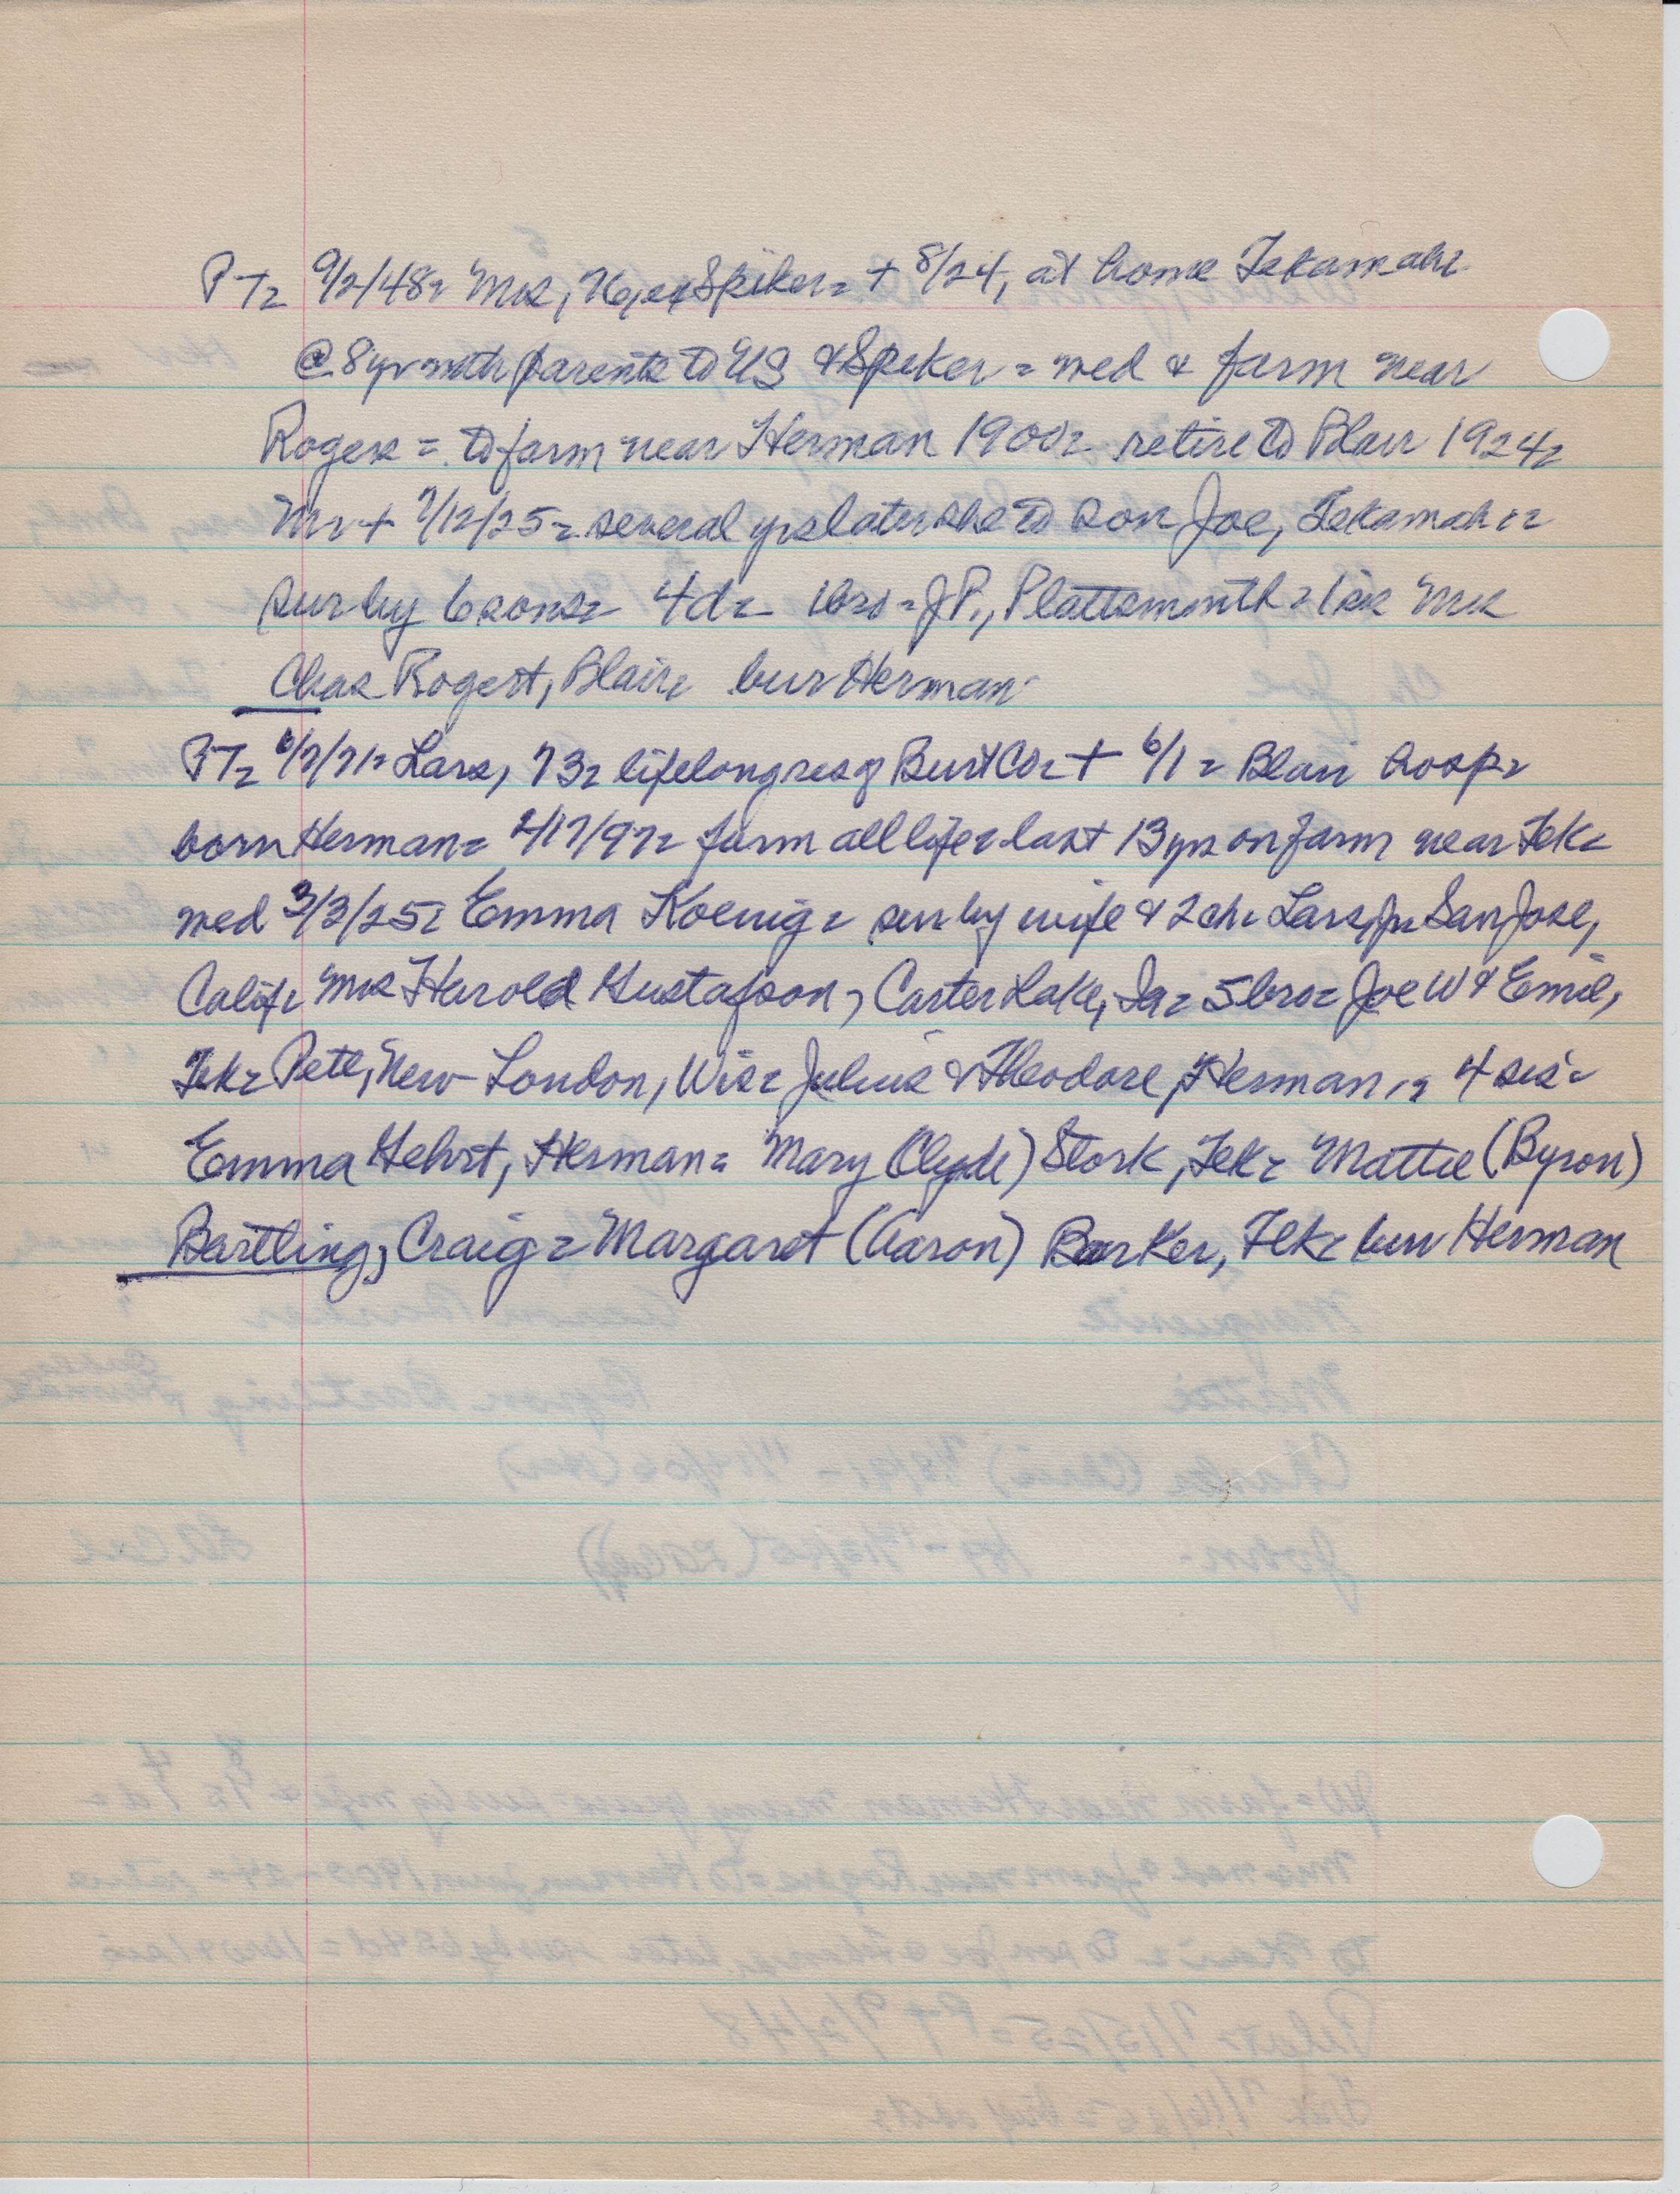 PT= 9/2/48= Mrs, 76, ex Spiker= + 8/24, at home Tekamah=
@ 8yr with parents to US & Spiker = wed & farm near
Rogers = to farm near Herman 1900= retire to Blair 1924=
Mr + 7/12/25= several yrs later she to son Joe, Tekamah=
sur by 6 sons= 4d= 1bro = J P., Plattsmouth = 1 sis Mrs
Chas Rogert, Blair= bur Herman
PT= 6/7/71= Lars, 73= lifelong res of Burt Co= + 6/1 = Blair hosp=
born Herman= 2/17/97= farm all life= last 13 yrs on farm near Tek=
wed 3/3/25= Emma Koenig= sur by wife & 2 ch= Lars, Jr= San Jose,
Calif= Mrs Harold Gustafson, Carter Lake, Ia= 5 bro= Joe W & Emil,
Tek= Pete, New London, Wis= Julius & Theodore, Herman,= 4 sis=
Emma Gehrt, Herman= Mary (Clyde) Stork, Tek= Mattie (Byron)
Bartling, Craig= Margaret (Aaron) Barker, Tek= bur Herman